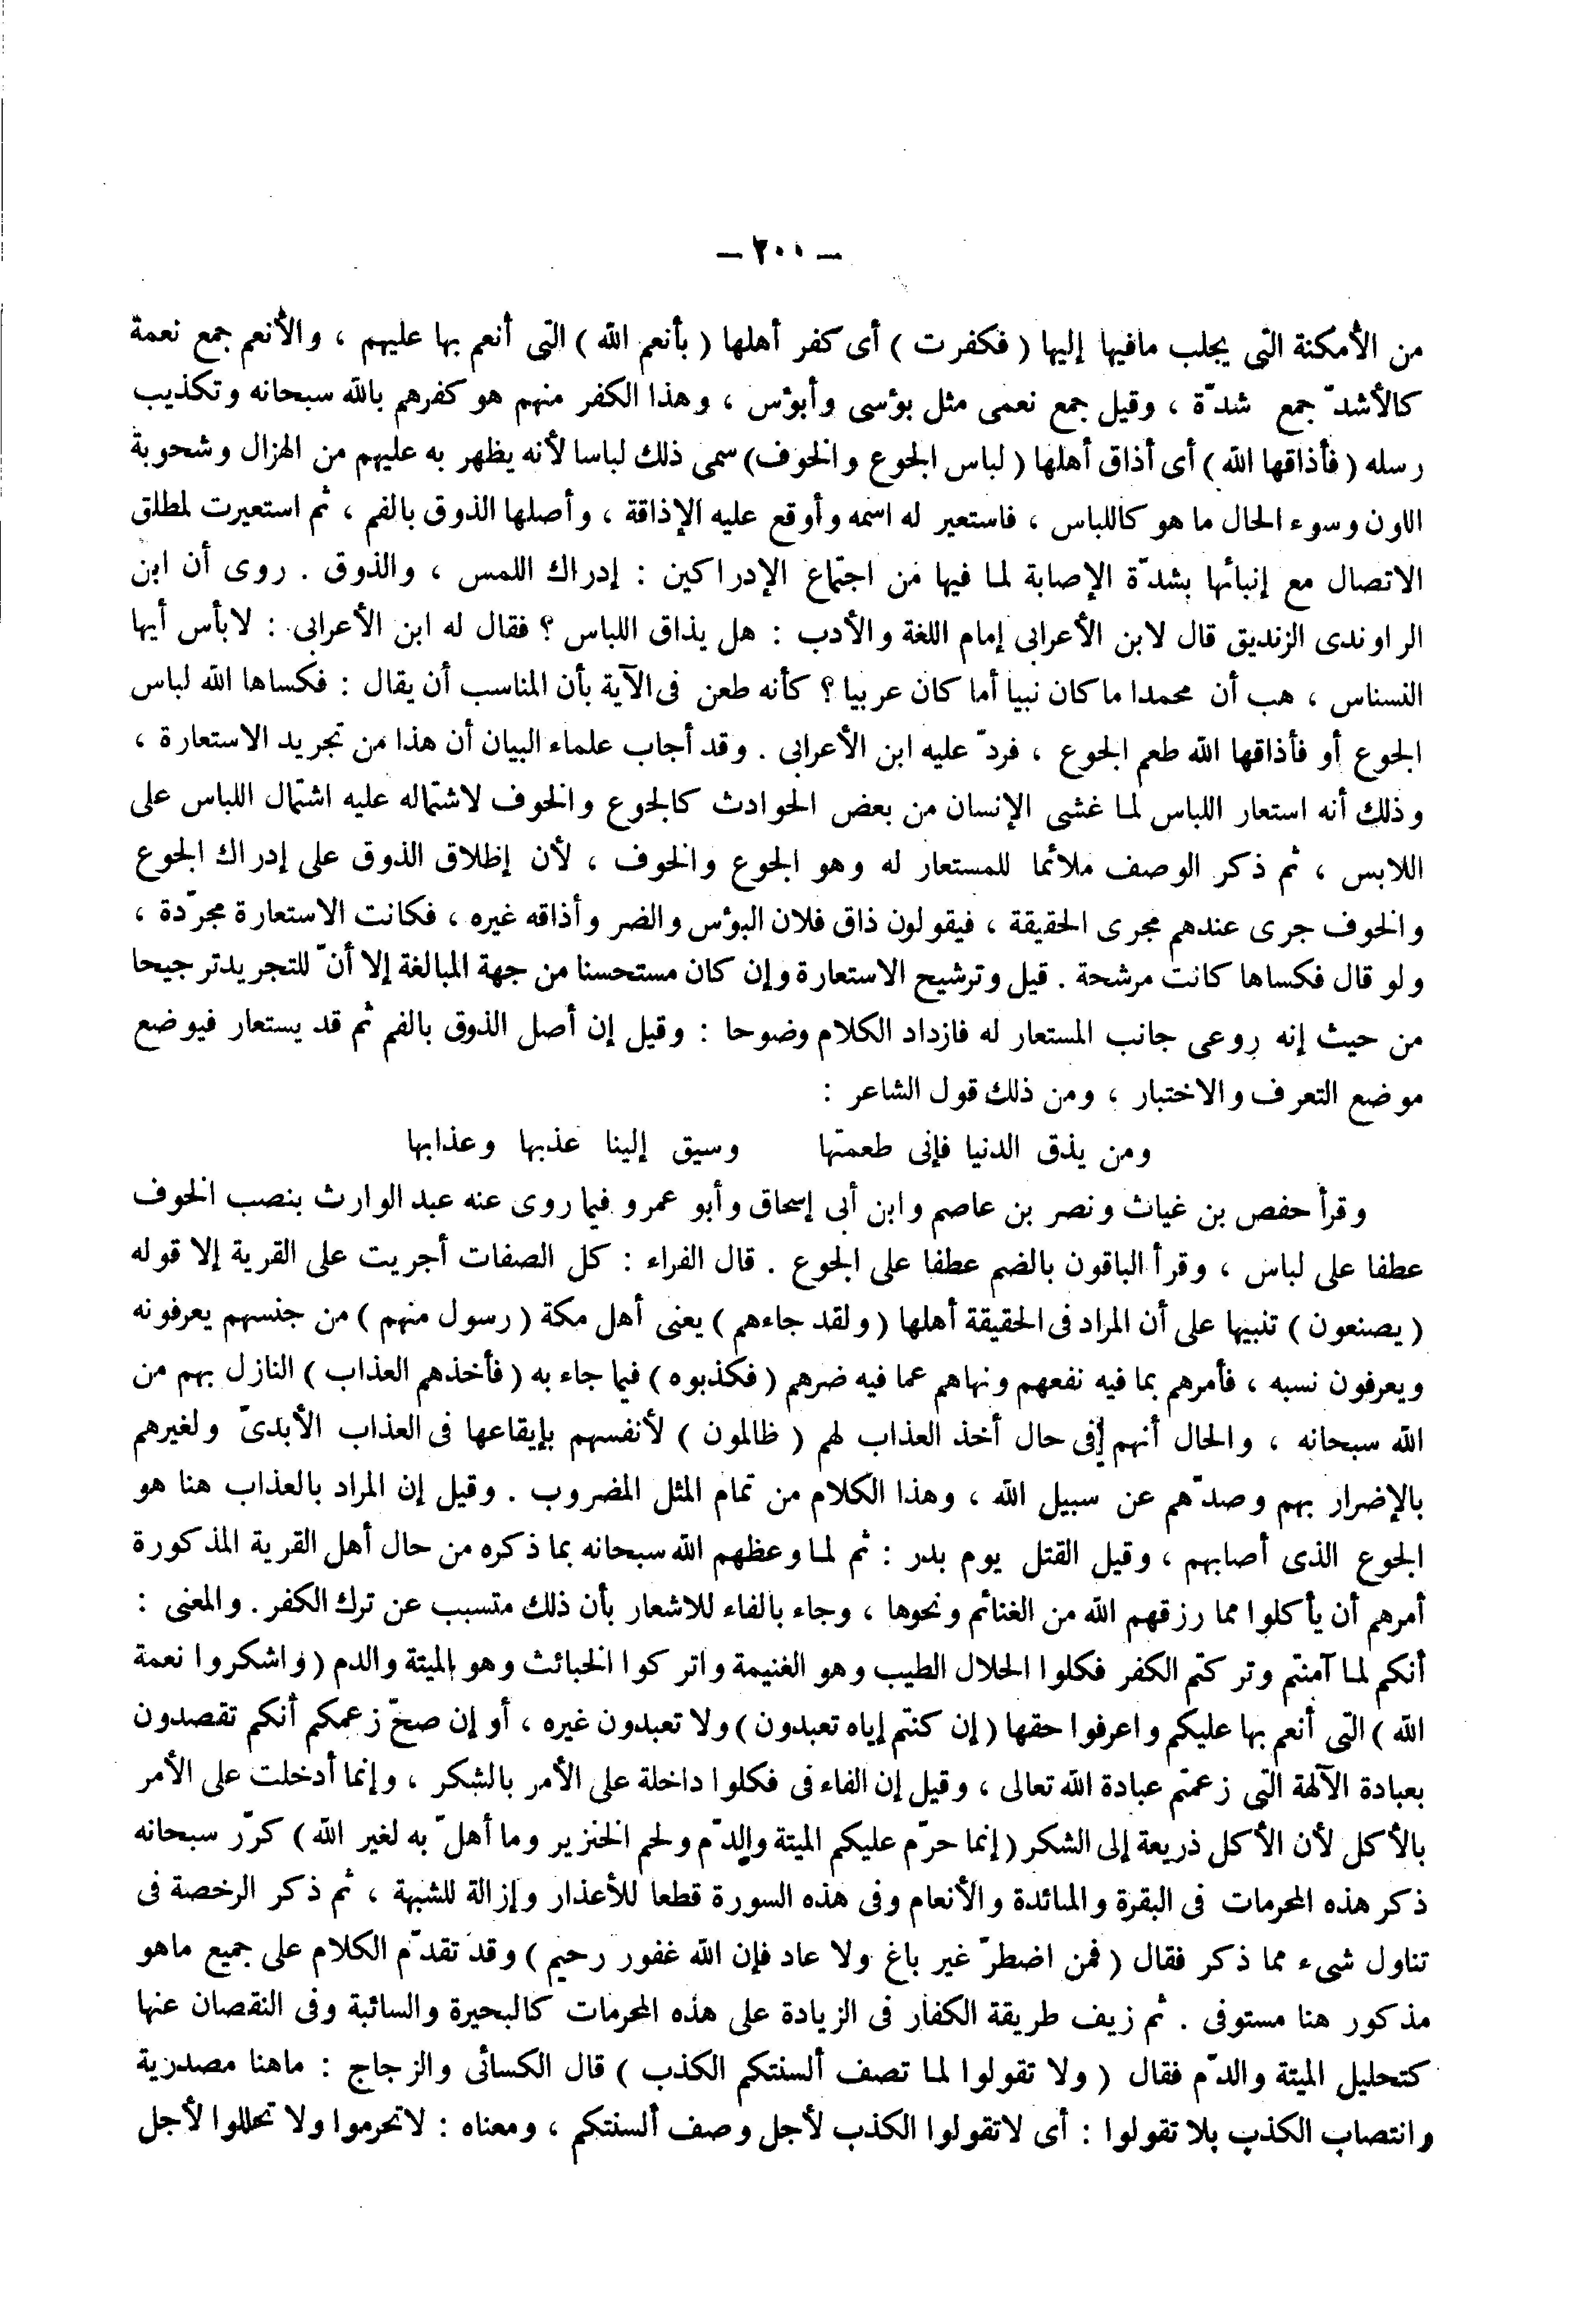 — ٢٠٠ —
من الأمكنة التى يجلب مافيها إليها ( فكفرت ) أى كفر أهلها ( بأنعم الله ) التى أنعم بها عليهم ، والأنعم جمع نعمة
كالأشدّ جمع شدّة ، وقيل جمع نعمى مثل بؤسى وأبؤس ، وهذا الكفر منهم هو كفرهم بالله سبحانه وتكذيب
رسله ( فأذاقها الله ) أى أذاق أهلها ( لباس الجوع والخوف ) سمى ذلك لباسا لأنه يظهر به عليهم من الهزال وشحوبة
اللون وسوء الحال ما هو كاللباس ، فاستعير له اسمه وأوقع عليه الإذاقة ، وأصلها الذوق بالفم ، ثم استعيرت لمطلق
الاتصال مع إنبائها بشدّة الإصابة لما فيها من اجتماع الإدراكين : إدراك اللمس ، والذوق . روى أن ابن
الراوندى الزنديق قال لابن الأعرابى إمام اللغة والأدب : هل يذاق اللباس ؟ فقال له ابن الأعرابى : لابأس أيها
النسناس ، هب أن محمدا ما كان نبيا أما كان عربيا ؟ كأنه طعن فى الآية بأن المناسب أن يقال : فكساها الله لباس
الجوع أو فأذاقها الله طعم الجوع ، فردّ عليه ابن الأعرابى . وقد أجاب علماء البيان أن هذا من تجريد الاستعارة ،
وذلك أنه استعار اللباس لما غشى الإنسان من بعض الحوادث كالجوع والخوف لاشتماله عليه اشتمال اللباس على
اللابس ، ثم ذكر الوصف ملائما للمستعار له وهو الجوع والخوف ، لأن إطلاق الذوق على إدراك الجوع
والخوف جرى عندهم مجرى الحقيقة ، فيقولون ذاق فلان البؤس والضر وأذاقه غيره ، فكانت الاستعارة مجرّدة ،
ولو قال فكساها كانت مرشحة . قيل وترشيح الاستعارة وإن كان مستحسنا من جهة المبالغة إلا أنّ للتجريد ترجيحا
من حيث إنه روعى جانب المستعار له فازداد الكلام وضوحا : وقيل إن أصل الذوق بالفم ثم قد يستعار فيوضع
موضع التعرف والاختبار ، ومن ذلك قول الشاعر :
ومن يذق الدنيا فإنى طعمتها وسيق إلينا عذبها وعذابها
وقرأ حفص بن غياث ونصر بن عاصم وابن أبى إسحاق وأبو عمرو فيما روى عنه عبد الوارث بنصب الخوف
عطفا على لباس ، وقرأ الباقون بالضم عطفا على الجوع . قال الفراء : كل الصفات أجريت على القرية إلا قوله
( يصنعون ) تنبيها على أن المراد فى الحقيقة أهلها ( ولقد جاءهم ) يعنى أهل مكة ( رسول منهم ) من جنسهم يعرفونه
ويعرفون نسبه ، فأمرهم بما فيه نفعهم ونهاهم عما فيه ضرهم ( فكذبوه ) فيما جاء به ( فأخذهم العذاب ) النازل بهم من
الله سبحانه ، والحال أنهم فى حال أخذ العذاب لهم ( ظالمون ) لأنفسهم بإيقاعها فى العذاب الأبدىّ ولغيرهم
بالإضرار بهم وصدّهم عن سبيل الله ، وهذا الكلام من تمام المثل المضروب . وقيل إن المراد بالعذاب هنا هو
الجوع الذى أصابهم ، وقيل القتل يوم بدر : ثم لما وعظهم الله سبحانه بما ذكره من حال أهل القرية المذكورة
أمرهم أن يأكلوا مما رزقهم الله من الغنائم ونحوها ، وجاء بالفاء للاشعار بأن ذلك متسبب عن ترك الكفر . والمعنى :
أنكم لما آمنتم وتركتم الكفر فكلوا الحلال الطيب وهو الغنيمة واتركوا الخبائث وهو الميتة والدم ( واشكروا نعمة
الله ) التى أنعم بها عليكم واعرفوا حقها ( إن كنتم إياه تعبدون ) ولا تعبدون غيره ، أو إن صحّ زعمكم أنكم تقصدون
بعبادة الآلهة التى زعمتم عبادة الله تعالى ، وقيل إن الفاء فى فكلوا داخلة على الأمر بالشكر ، وإنما أدخلت على الأمر
بالأكل لأن الأكل ذريعة إلى الشكر ( إنما حرّم عليكم الميتة والدّم ولحم الخنزير وما أهلّ به لغير الله ) كرّر سبحانه
ذكر هذه المحرمات فى البقرة والمائدة والأنعام وفى هذه السورة قطعا للأعذار وإزالة للشبهة ، ثم ذكر الرخصة فى
تناول شىء مما ذكر فقال ( فمن اضطرّ غير باغ ولا عاد فإن الله غفور رحيم ) وقد تقدّم الكلام على جميع ماهو
مذكور هنا مستوفى . ثم زيف طريقة الكفار فى الزيادة على هذه المحرمات كالبحيرة والسائبة وفى النقصان عنها
كتحليل الميتة والدّم فقال ( ولا تقولوا لما تصف ألسنتكم الكذب ) قال الكسائى والزجاج : ماهنا مصدرية
وانتصاب الكذب بلا تقولوا : أى لاتقولوا الكذب لأجل وصف ألسنتكم ، ومعناه : لاتحرموا ولا تحللوا لأجل